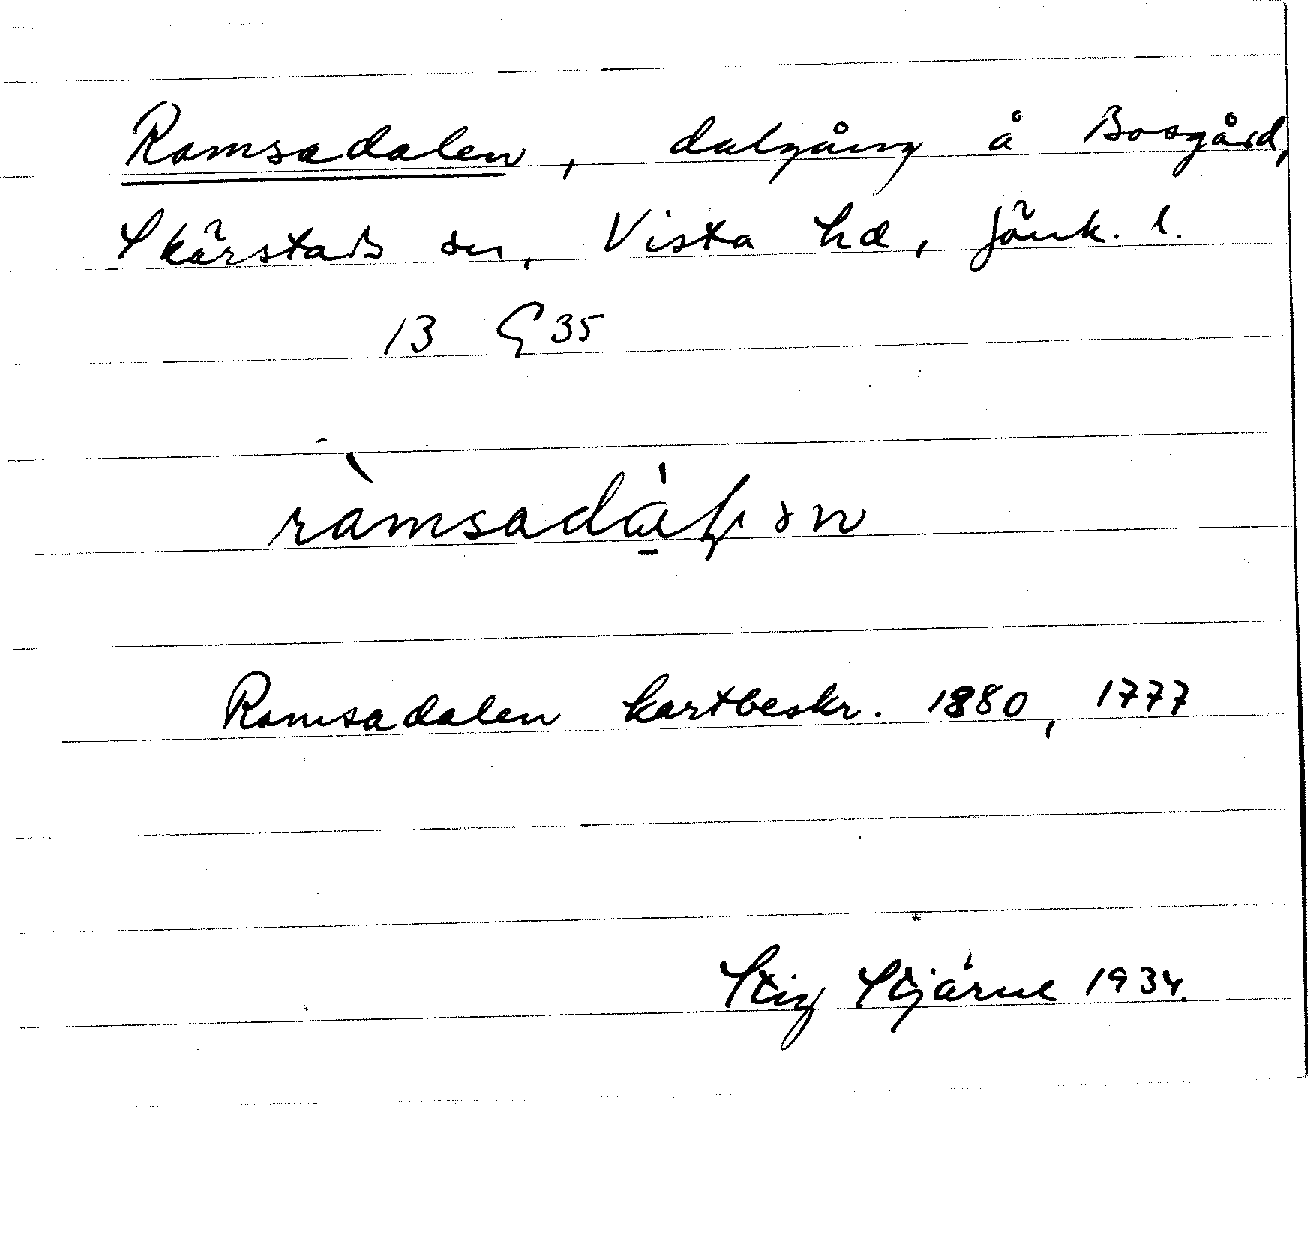 Ramsadalen, dalgång å Bosgård,
Skärstads sn, Vista hd, Jönk. l.
13 G 35
ràmsadàɭən
Ramsadalen kartbeskr. 1880, 1777
Stig Stjärne 1934.